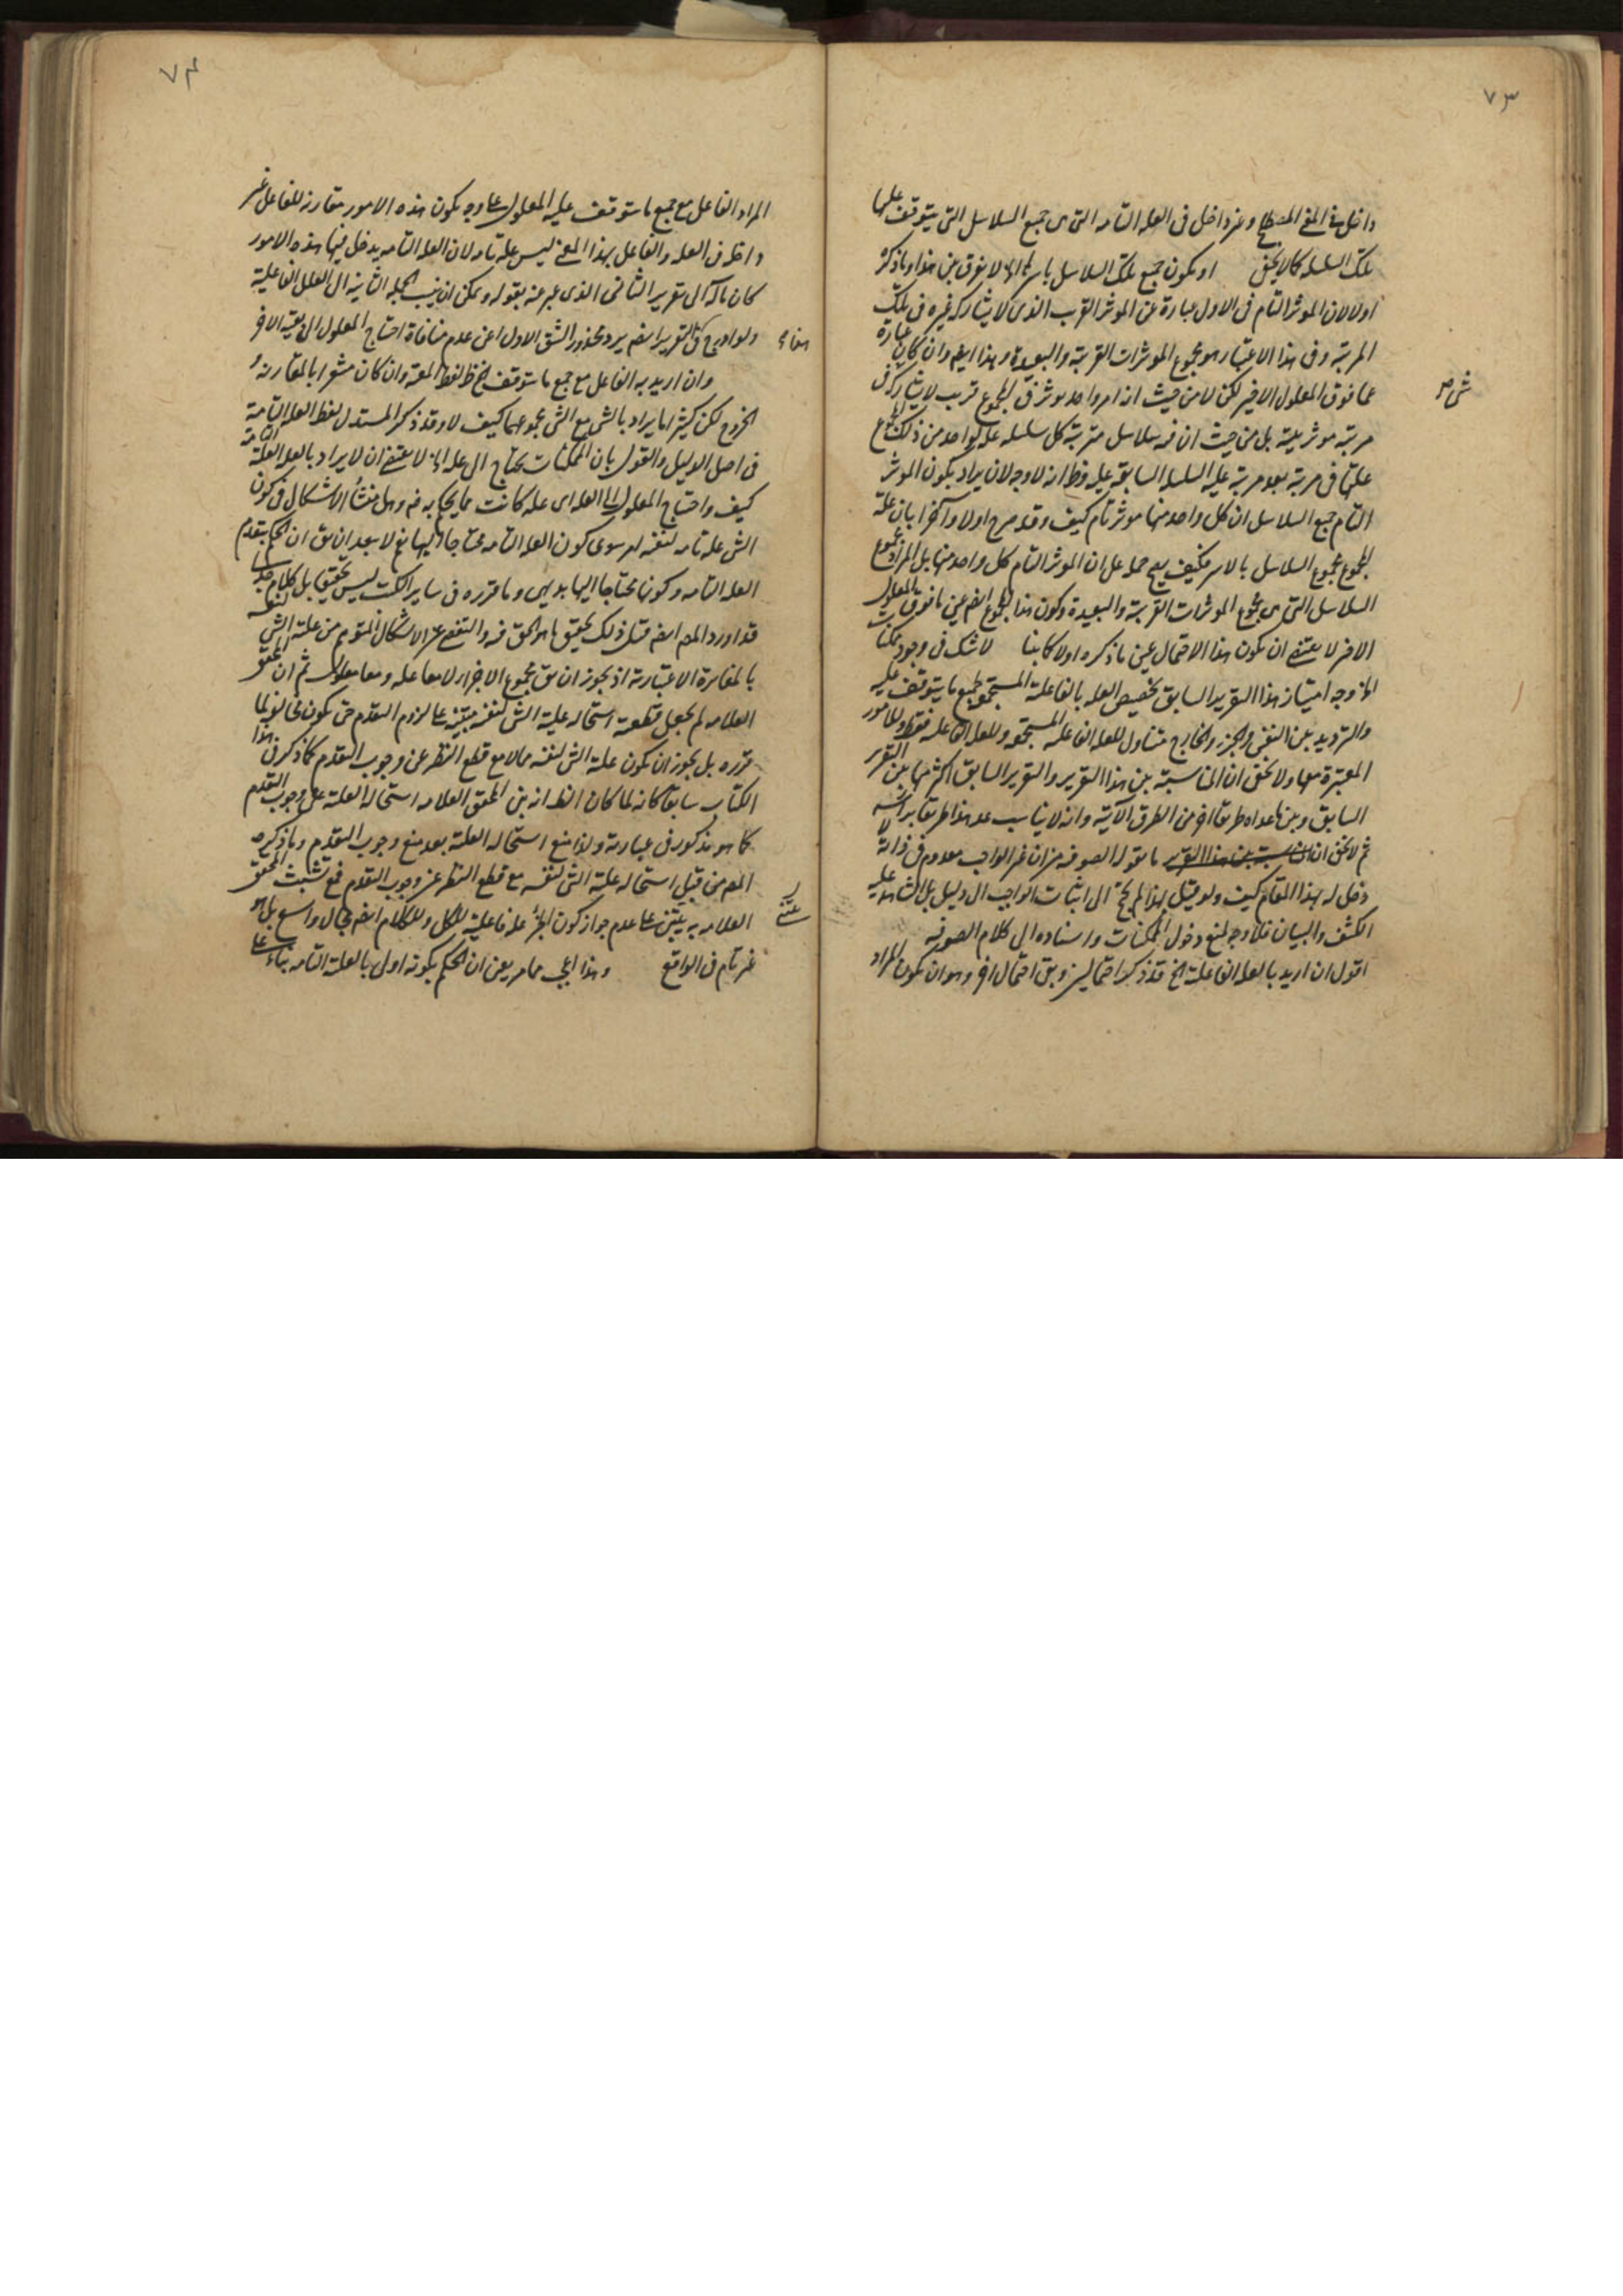 ٧٣
داخل في المنع المصطلح وغير داخل فى العله التامه التى هى جميع السلاسل التى يتوقف عليها
تلك السلسله كما لا يخفى او يكون جميع تلك السلاسل باسرها الخ لا يفرق بين هذا وما ذكره
اولا لان الموثر التام فى الاول عبارة عن الموثر القريب الذى لا يشاركه غيره فى تلك
المرتبه وفى هذا الاعتبار هو مجموع الموثرات القريبه والبعيدة وهذا ايضا وان كان عبارة
عما فوق المعلول الاخير لكن لا من حيث انه امر واحد موثر فى المجموع قريب لا يشاركه فى
مرتبه موثريته بل من حيث ان فيه سلاسل مترتبة كل سلسله عله لواحد من ذلك المجموع
عليتها فى مرتبة بعد مرتبة عليه السلسله السابقه عليه وظ انه لا وجه لان يراد بكون الموثر
التام جميع السلاسل ان كل واحد منها موثر تام كيف وقد صرح اولا وآخرا بان علة
المجموع مجموع السلاسل بالاسر فكيف يصح حمله على ان الموثر التام كل واحد منها بل المراد مجموع
السلاسل التى هى مجموع الموثرات القريبة والبعيدة وكون هذا المجموع ايضا عين ما فوق المعلول
الاخر لا يقتضى ان يكون هذا الاحتمال عين ما ذكره اولا كما بينا لا شك فى وجود ممكنات
الخ وجه امتياز هذا التقرير السابق تخصيص العله بالفاعلية المستجمع لجميع ما يتوقف عليه
والترديد بين النفس والجزء والخارج متناول للعله الفاعله المستجمعه وللعله الفاعله فقط وللامور
المعتبرة معها ولا يخفى ان المناسبة بين هذا التقرير والتقرير السابق اكثر منها بين التقرير
السابق وبين ما عداه طريقا اخر من الطرق الآتيه وانه لا يناسب عد هذا طريقا براسه
ثم لا يخفى ان ما يقوله الصوفيه من ان غير الواجب معدوم فى ذاته لا
دخل له بهذا المقام كيف ولو قيل بهذا لم يحتج الى اثبات الواجب الى دليل بل الشاهد عليه
الكشف والبيان فلا وجه لمنع دخول الممكنات واسناده الى كلام الصوفيه
اقول ان اريد بالعله الفاعلية الخ قد ذكر احتمالين وبقى احتمال اخر وهو ان يكون المراد
٧٤
المراد الفاعل مع جميع ما يتوقف عليه المعلول على وجه يكون هذه الامور مقارنة للفاعل غير
داخله فى العله والفاعل بهذا المعنى ليس علة تامه لان العله التامه يدخل فيها هذه الامور
كان مآله الى تقرير الثانى الذى عبر عنه بقوله ويمكن ان ينسب الجمله الثانيه الى العلل الفاعلية
ولو ادرج فى التقرير ايضا يرد محذور الشق الاول اعنى عدم منافاة احتياج المعلول الى بقية الاخر
وان اريد به الفاعل مع جميع ما يتوقف الخ ظ لفظ المعية وان كان مشعرا بالمقارنه و
الخروج لكن كثيرا ما يراد بالشى مع الشى مجموعهما كيف لا وقد ذكر المستدل لفظ العله التامة
فى اصل الدليل والقول بان الممكنات يحتاج الى عله الخ لا يقتضى ان لا يراد بالعله العلة التامة
كيف واحتياج المعلول الى العله اى عله كانت مما يحكم به وهل منشأ الاشكال فى كون
الشى علة تامه لنفسه سوى كون العله التامه محتاجا اليها نعم لا يبعد ان يق ان الحكم بتقدم
العله التامه وكونها محتاجا اليها بديهى وما قرره فى ساير الكتب ليس تحقيقا بل كلام
قد اورد المص ايضا قبل ذلك تحقيق ما هو الحق فيه والتفصى عن الاشكال المتوهم من علية الشى لنفسه
بالمغايرة الاعتبارية اذ يجوز ان يق مجموع الاجزاء لا معا عله ومعا معلول ثم ان المحقق
العلامه لم يجعل قطعية استحاله علية الشى لنفسه مبتنيه على لزوم التقدم حتى يكون مخالفا لما
قرره بل يجوز ان يكون علية الشى لنفسه محالا مع قطع النظر عن وجوب التقدم كما ذكر فى هذا
الكتاب سابقا كانه لما كان الظ انه بنى المحقق العلامه استحالة العلية على وجوب التقدم
كما هو مذكور فى عبارته ولذا منع استحاله العلية بعد منع وجوب التقدم وما ذكره
المص من قبل استحاله علية الشى لنفسه مع قطع النظر عن وجوب التقدم فمع تشبث المحقق
العلامه به يبتنى على عدم جواز كون الجزء علة فاعلية للكل وللكلام ايضا مجال واسع بل هو
غير تام فى الواقع وهذا اعجب مما مر يعنى ان الحكم بكونه اولى بالعلة التامه بناء على